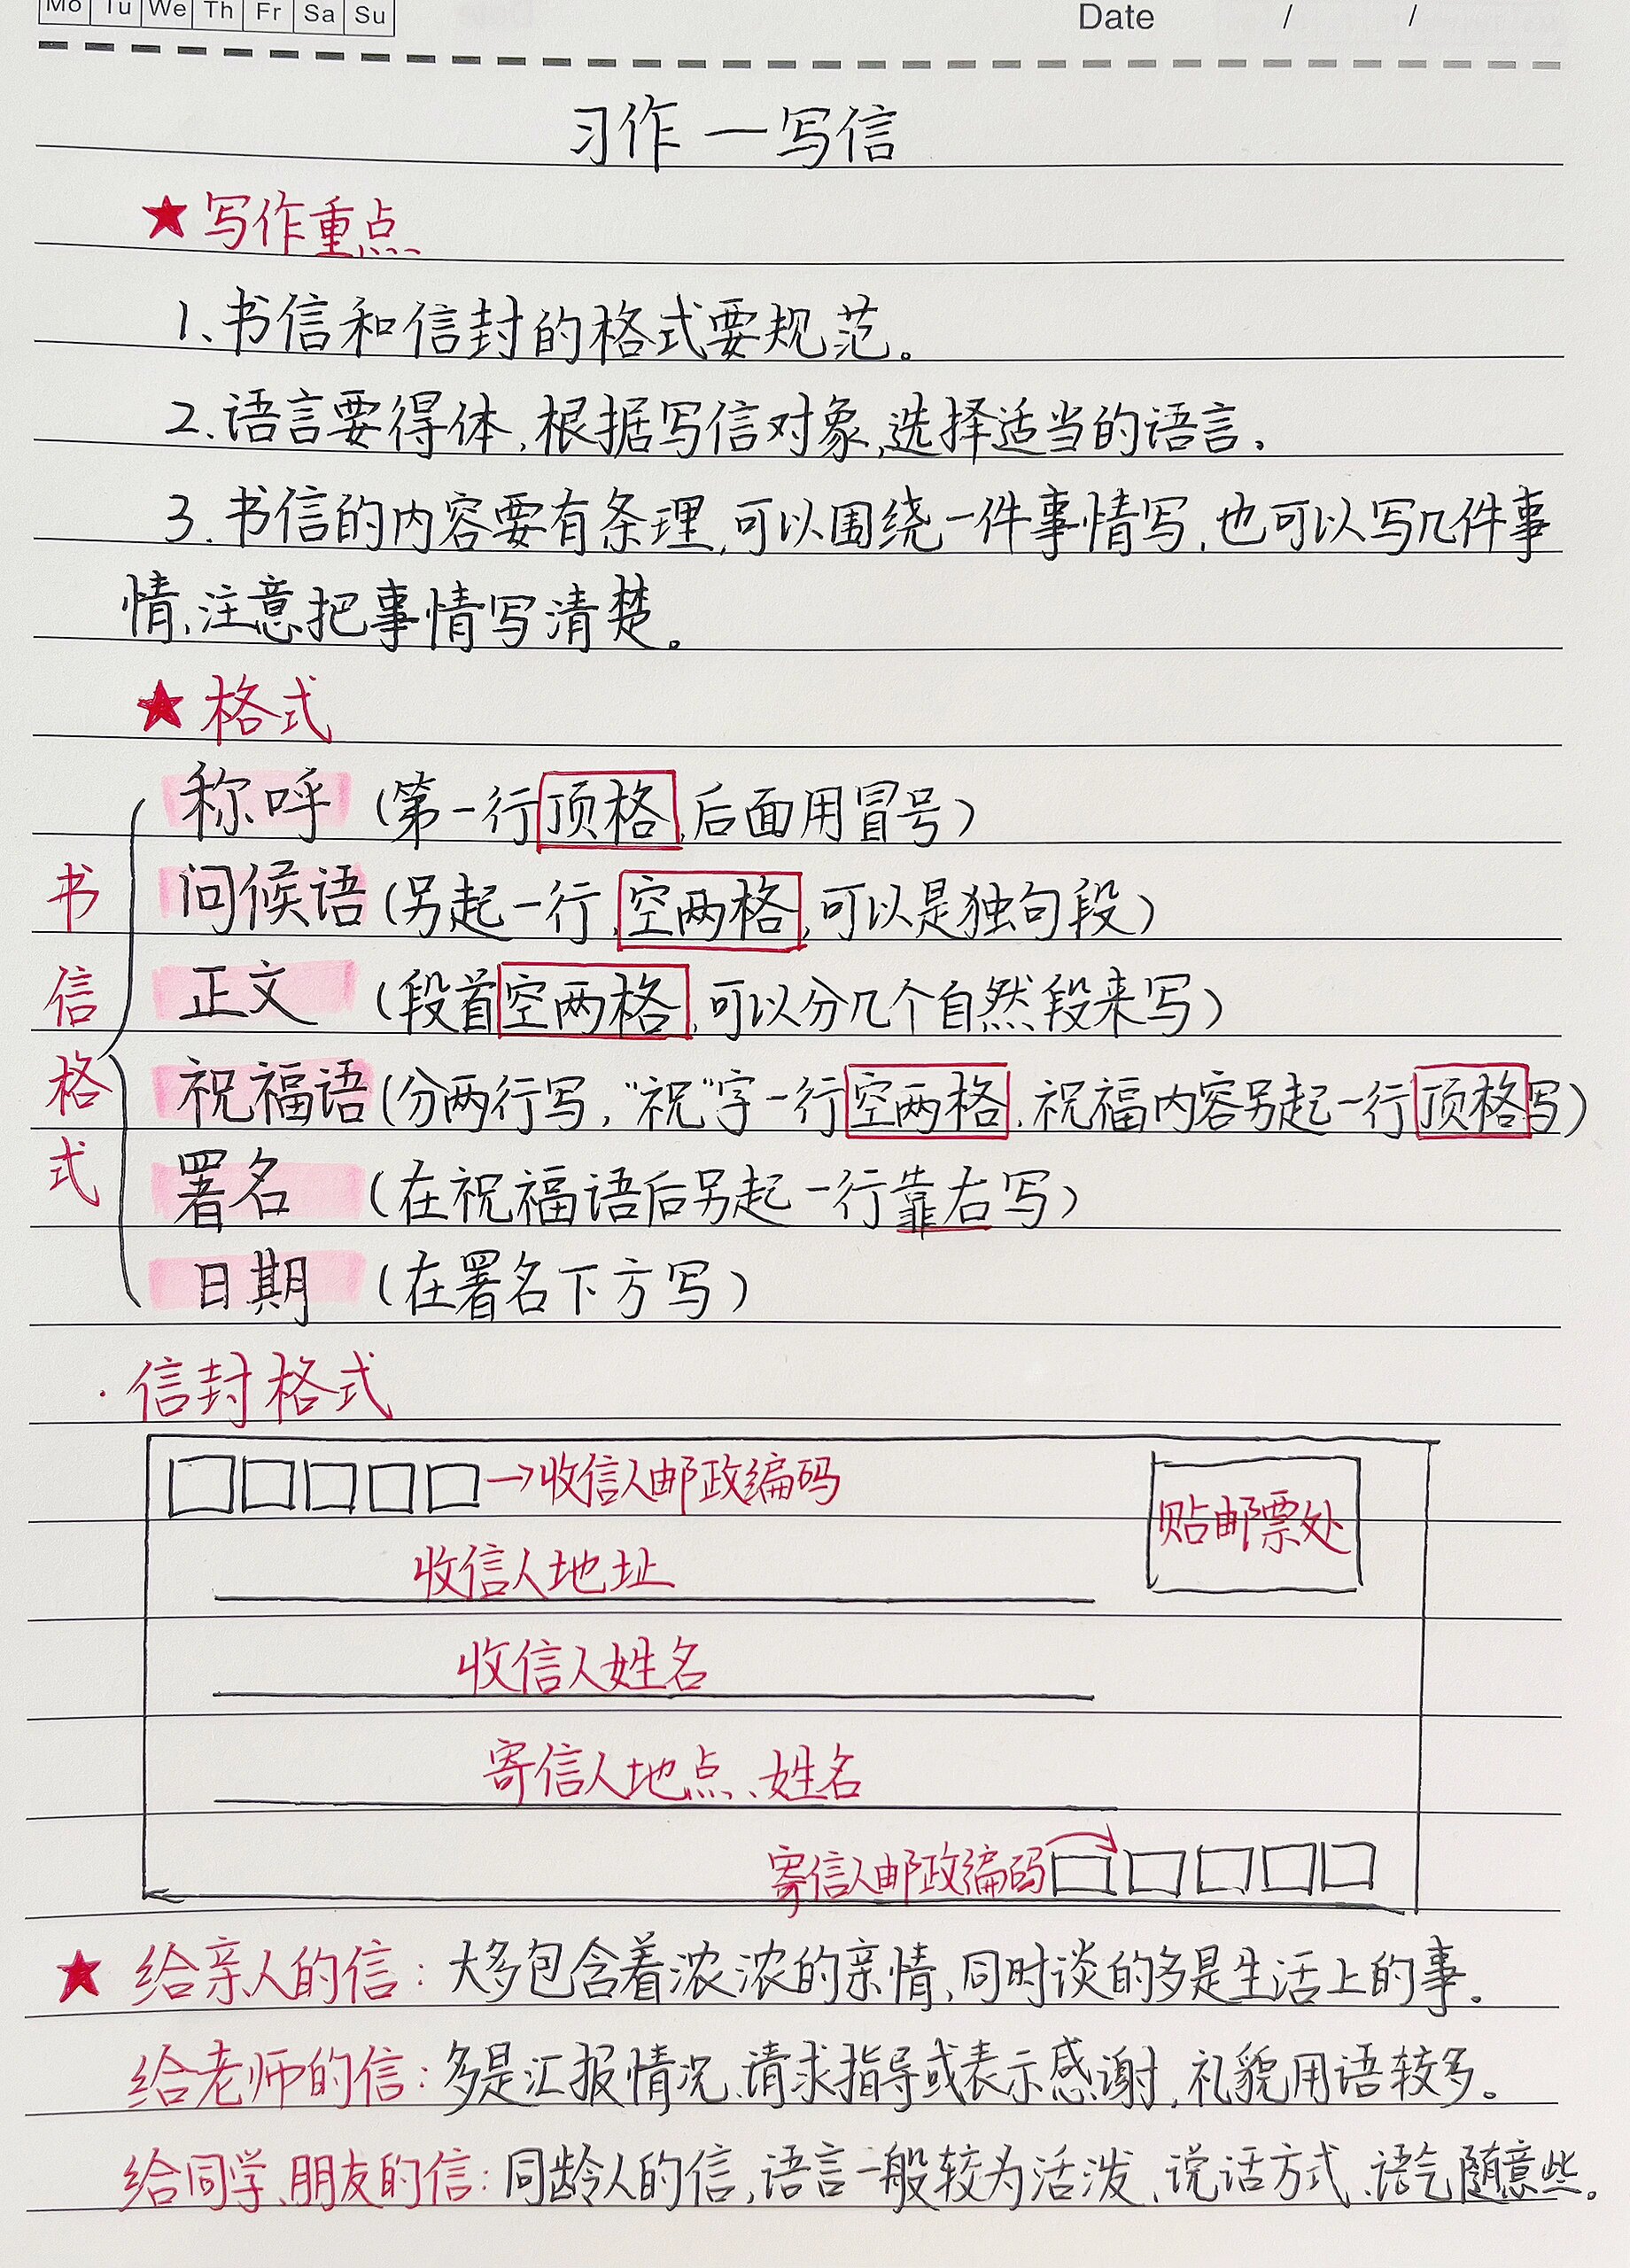 Mo Tu We Th Fr Sa Su
Date / /
习作一写信
★写作重点
1、书信和信封的格式要规范。
2.语言要得体,根据写信对象,选择适当的语言.
3.书信的内容要有条理,可以围绕一件事情写,也可以写几件事
情,注意把事情写清楚。
★格式
书信格式
称呼(第一行顶格,后面用冒号)
问候语(另起一行,空两格,可以是独句段)
正文(段首空两格,可以分几个自然段来写)
祝福语(分两行写,“祝”字一行空两格.祝福内容另起一行顶格写)
署名(在祝福语后另起一行靠右写)
日期(在署名下方写)
·信封格式
→收信人邮政编码
贴邮票处
收信人地址
收信人姓名
寄信人地点、姓名
寄信人邮政编码
★给亲人的信:大多包含着浓浓的亲情,同时谈的多是生活上的事.
给老师的信:多是汇报情况、请求指导或表示感谢,礼貌用语较多。
给同学、朋友的信:同龄人的信,语言一般较为活泼、说话方式、语气随意些。